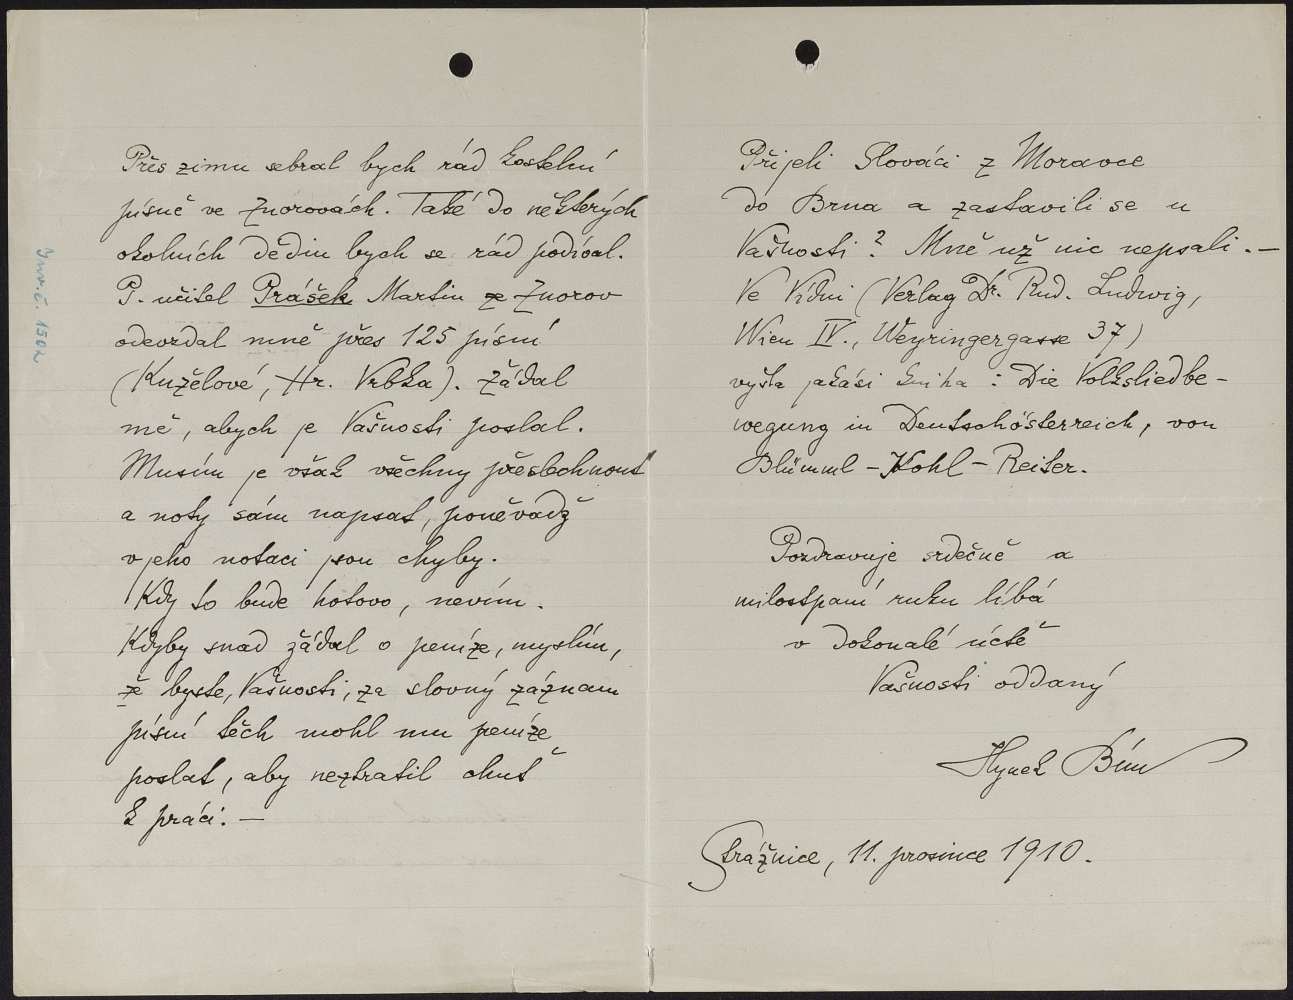 Inv. č. 1502
Přes zimu sebral bych rád kostelní
písně ve Znorovách. Také do některých
okolních dědin bych se rád podíval.
P. učitel Prášek Martin ze Znorov
odevzdal mně přes 125 písní
(Kuželové, Hr. Vrbka). Žádal
mě, abych je Vašnosti poslal.
Musím je však všechny přeslechnout
a noty sám napsat, poněvadž
v jeho notaci jsou chyby.
Kdy to bude hotovo, nevím.
Kdyby snad žádal o peníze, myslím,
že byste, Vašnosti, za slovný záznam
písní těch mohl mu peníze
poslat, aby neztratil chuť
k práci. —
Přijeli Slováci z Moravce
do Brna a zastavili se u
Vašnosti? Mně už nic nepsali. —
Ve Vídni (Verlag Dr. Rud. Ludwig,
Wien IV., Weyringergasse 37)
vyšla jakási kniha: Die Volksliedbe-
wegung in Deutschösterreich, von
Blümml - Kohl - Reiter.
Pozdravuje srdečně a
milostpaní ruku líbá
v dokonalé úctě
Vašnosti oddaný
Hynek Bím
Strážnice, 11. prosince 1910.